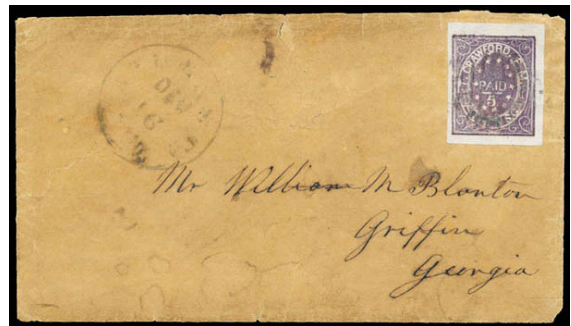 CRAWFORD, P.M.
PAID
5
DEC
16
Mr William M Blanton
Griffin
Georgia